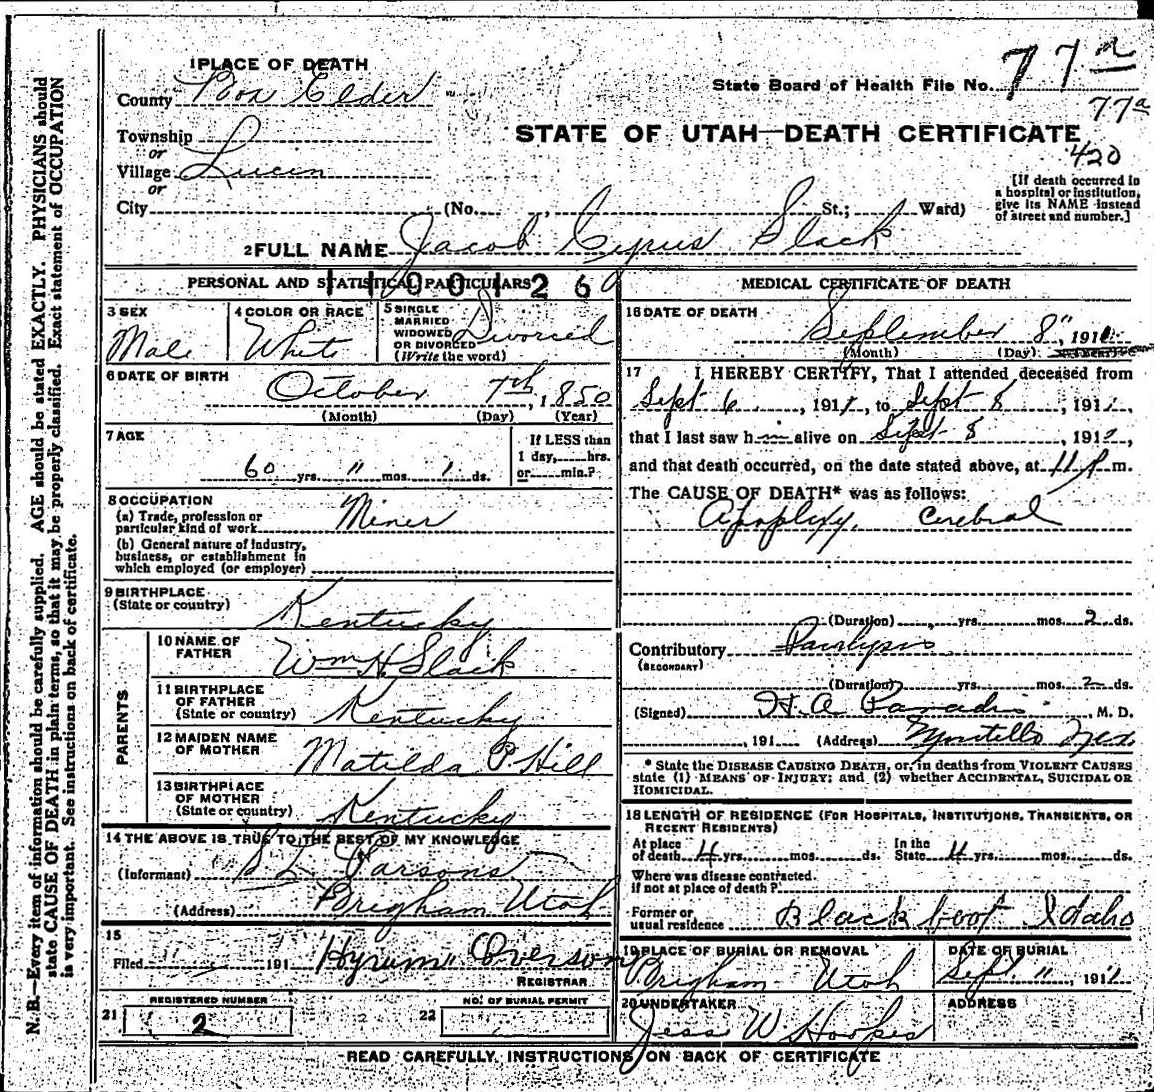 1 PLACE OF DEATH
County Box Elder
State Board of Health File No. 77a
77a
Township
or
STATE OF UTAH—DEATH CERTIFICATE
420
Village Lucin
or
City (No. , St.; Ward)
[If death occurred in
a hospital or institution,
give its NAME instead
of street and number.]
2 FULL NAME Jacob Cyrus Slack
PERSONAL AND STATISTICAL PARTICULARS
3 SEX
Male
4 COLOR OR RACE
White
5 SINGLE
MARRIED
WIDOWED
OR DIVORCED
(Write the word)
Divorced
6 DATE OF BIRTH
October 7th, 1850
(Month) (Day) (Year)
7 AGE
60 yrs. 11 mos. 1 ds.
If LESS than
1 day, hrs.
or min.?
8 OCCUPATION
(a) Trade, profession or
particular kind of work Miner
(b) General nature of industry,
business, or establishment in
which employed (or employer)
9 BIRTHPLACE
(State or country) Kentucky
PARENTS
10 NAME OF
FATHER Wm H. Slack
11 BIRTHPLACE
OF FATHER
(State or country) Kentucky
12 MAIDEN NAME
OF MOTHER Matilda P Hill
13 BIRTHPLACE
OF MOTHER
(State or country) Kentucky
14 THE ABOVE IS TRUE TO THE BEST OF MY KNOWLEDGE
(Informant) Parsons
(Address) Brigham Utah
15
Filed 191 Hyrum Overson
REGISTRAR
21 REGISTERED NUMBER
2
22 NO. OF BURIAL PERMIT
MEDICAL CERTIFICATE OF DEATH
16 DATE OF DEATH
September 8", 1911
(Month) (Day)
17 I HEREBY CERTIFY, That I attended deceased from
Sept 6, 1911, to Sept 8, 1911,
that I last saw h alive on Sept 8, 1911,
and that death occurred, on the date stated above, at 11 P m.
The CAUSE OF DEATH* was as follows:
Apoplexy, Cerebral
(Duration) yrs. mos. 2 ds.
Contributory Paralysis
(SECONDARY)
(Duration) yrs. mos. 2 ds.
(Signed) H. A. Paradis, M. D.
, 191 (Address) Montello Nev.
* State the DISEASE CAUSING DEATH, or, in deaths from VIOLENT CAUSES
state (1) MEANS OF INJURY; and (2) whether ACCIDENTAL, SUICIDAL OR
HOMICIDAL.
18 LENGTH OF RESIDENCE (FOR HOSPITALS, INSTITUTIONS, TRANSIENTS, OR
RECENT RESIDENTS)
At place
of death 4 yrs. mos. ds.
In the
State 4 yrs. mos. ds.
Where was disease contracted,
if not at place of death?
Former or
usual residence Blackfoot Idaho
19 PLACE OF BURIAL OR REMOVAL
Brigham Utah
DATE OF BURIAL
Sept 11, 1911
20 UNDERTAKER
Jess W Hoopes
ADDRESS
READ CAREFULLY INSTRUCTIONS ON BACK OF CERTIFICATE
N. B.—Every item of information should be carefully supplied. AGE should be stated EXACTLY. PHYSICIANS should
state CAUSE OF DEATH in plain terms, so that it may be properly classified. Exact statement of OCCUPATION
is very important. See instructions on back of certificate.